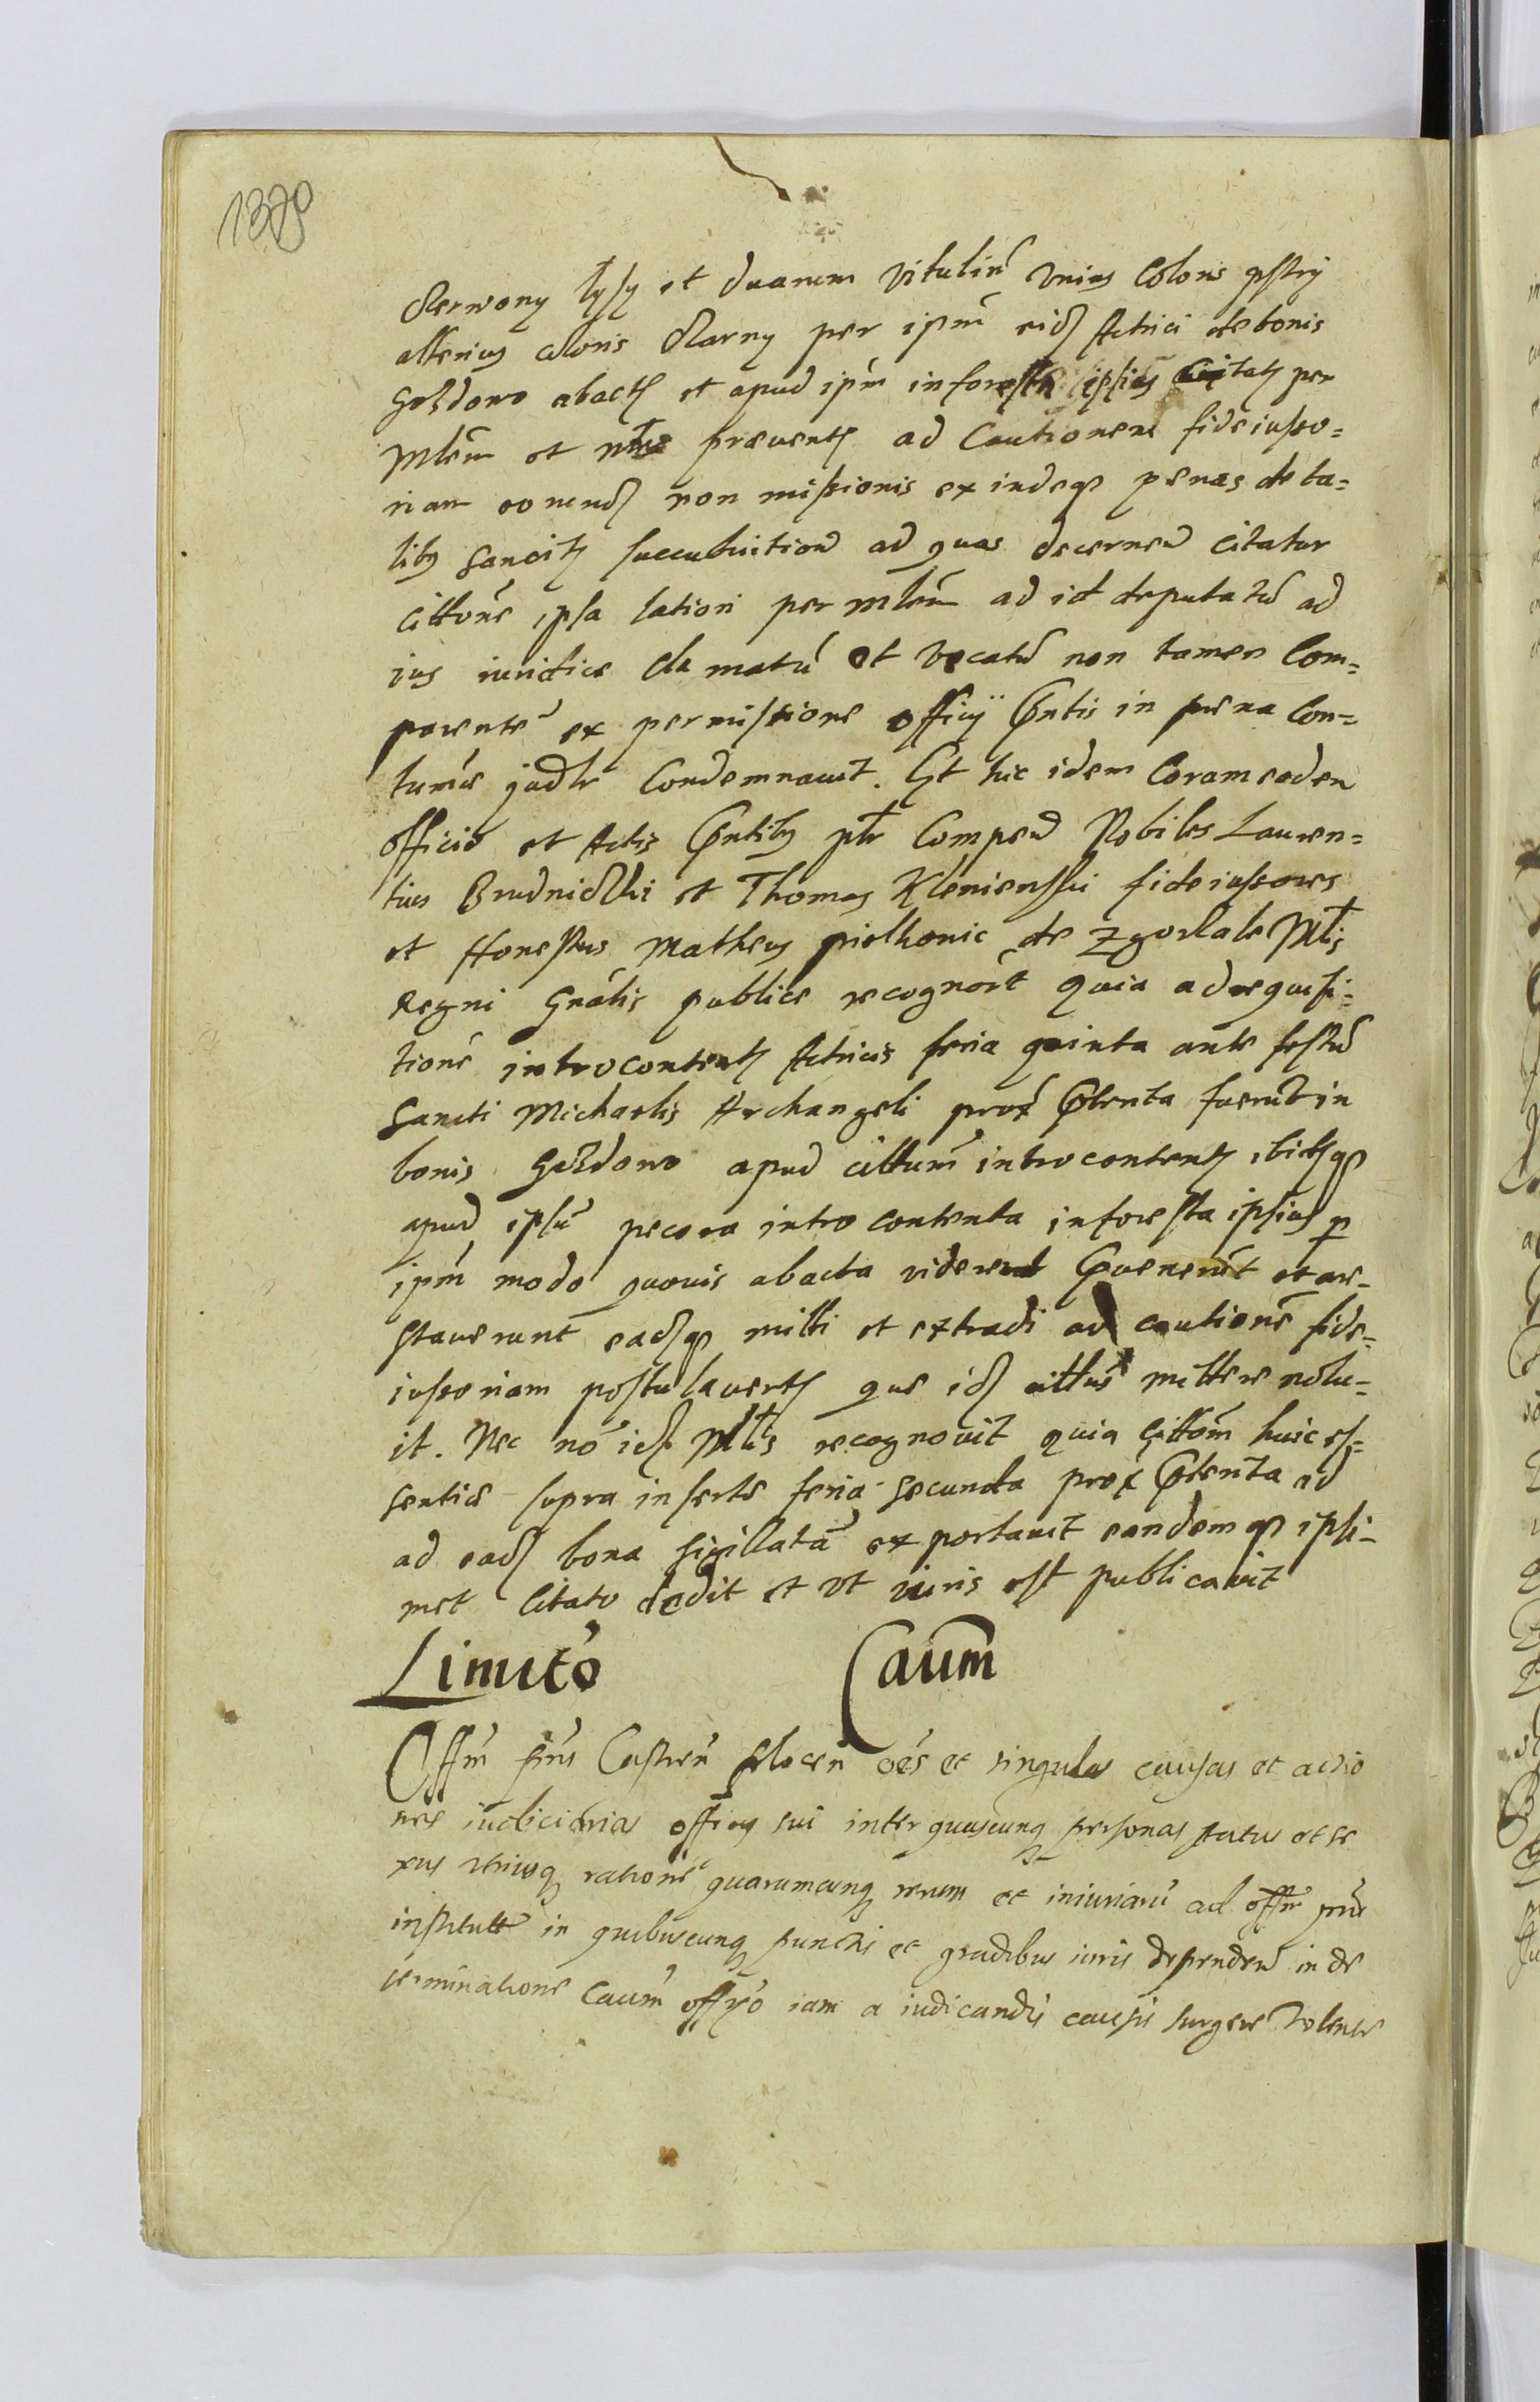 1378
Czerwony łysy et duarum vitulinũ vnius Coloris pstry
alterius coloris Czarny per ipsm̃ eid Actrici de bonis
Gozdowo abact et apud ipm̃ in foresta ipsius Citat per
Mlẽm et prævent ad Cautionem fideiusso=
riam eorund non missionis exindeq penas de ta=
libus sancit succubuitiond ad quas decernend citatur
Cittone ipsa lation per Mlẽm ad id deputatũ ad
ius iuridice clamatũ et vocatũ non tamen Com=
parentẽ ex permissione officÿ pñtis in pena Con=
tumie jɑdlr Condemnavit. Et hic idem Coram eodem
officio et Actis pñtibus ptr Compend Nobiles Lauren=
tius Brudniczki et Thomas Klenienski fideiussores
et Honestus Matheus de Mtis
Regni Gnãlis publice recognort Quia ad requisi=
tionẽ introcontent Actricis feria quinta ante festũ
Sancti Michaelis Archangeli prox pterita fuerũt in
bonis Gozdowo apud cittum introcontent ibidq
apud ipsũ pecora intro contenta in foresta ipsius p
ipm̃ modo quovis abacta viderunt pvenerũt et are=
staverunt eadq mitti et extradi ad cautionẽ fide=
iussoriam postulavert que id cittus mittere nolu=
it. Nec nõ id Mtis recognovit quia Cittom̃ huic es=
sentie supra inserte feria secunda prox pterita ad
ad ead bona sigillatã exportavit eandemq ipsi=
met Citato dedit et vt iuris est publicavit
Limitõ Caum̃
Offm̃ pñs Castren Plocen oẽs et singulas causas et actio
nes iudiciarias officy sui inter quascunq personas status et se
xus vtriusq rationẽ quarumcunq rerum et iniuriarũ ad offm̃ pñs
institutt in quibuscunq punctis et gradibus iuris dependend in de
terminatione Caum̃ offÿo iam a iudicandis causis surgere volente